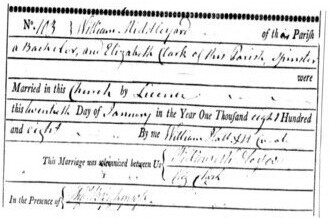 No. 103 William Middleyard of this Parish
a Bachelor, and Elizabeth Clark of this Parish Spinster
were
Married in this Church by Licence
this twentieth Day of January in the Year One Thousand eight Hundred
and eight By me William
This Marriage was solemnized between Us
Clark
In the Presence of